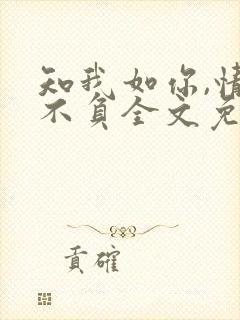 知我如你,情
不负全文免
贡確